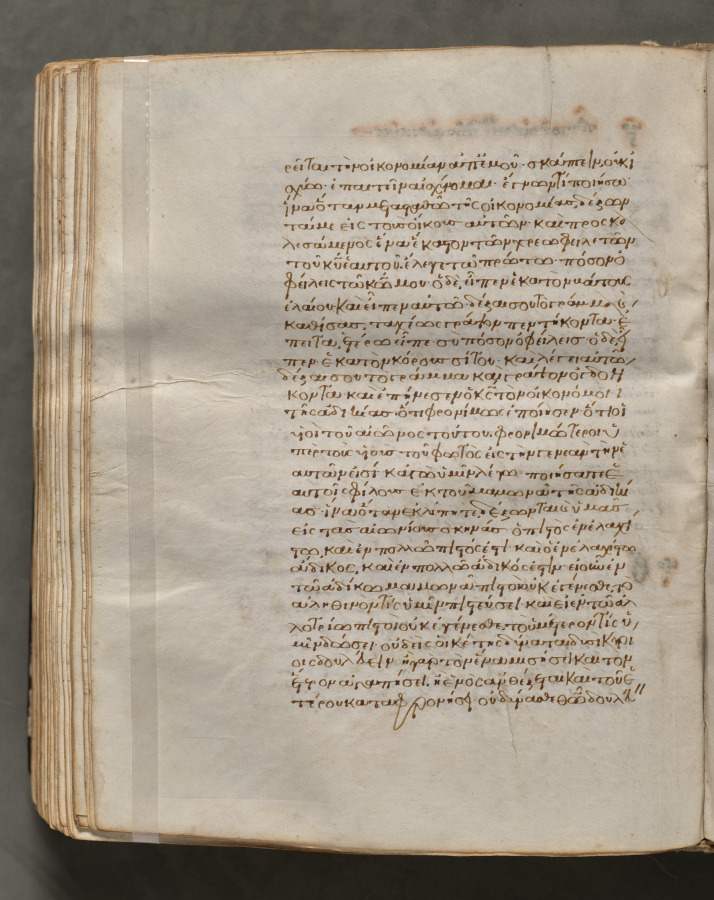 ρεῖται τὴν οἰκονομίαν ἀπ' ἐμοῦ· σκάπτειν οὐκ ἰ
σχύω· ἐπαιτεῖν αἰσχύνομαι· ἔγνων τί ποιήσω·
ἵνα ὅταν μετασταθῶ τῆς οἰκονομίας, δέξων
ταί με εἰς τοὺς οἴκους αὐτῶν· καὶ προσκα
λεσάμενος ἕνα ἕκαστον τῶν χρεωφειλετῶν
τοῦ κυ ἑαυτοῦ. ἔλεγε τῶ πρώτω· πόσον ὀ
φείλεις τῶ κω μου· ὁ δὲ, εἶπεν ἑκατὸν βάτους
ἐλαίου· καὶ εἶπεν αὐτῶ· δέξαι σου τὸ γράμμα
καθίσας, ταχέως γράψον πεντήκοντα· ἔ
πειτα, ἑτέρω εἶπε· σὺ πόσον ὀφείλεις· ὁ δὲ, εἶ
πεν· ἑκατὸν κόρους σίτου· καὶ λέγει αὐτῶ·
δέξαι σου τὸ γράμμα καὶ γράψον ὀγδοή
κοντα· καὶ ἐπήνεσεν ὁ κς τὸν οἰκονόμον
τῆς ἀδικίας· ὅτι φρονίμως ἐποίησεν· ὅτι οἱ
υἱοὶ τοῦ αἰῶνος τούτου. φρονιμώτεροι ὑ
πὲρ τοὺς υἱοὺς τοῦ φωτὸς εἰς τὴν γενεὰν τὴν ἑ
αυτῶν εἰσί· κἀγὼ ὑμῖν λέγω· ποιήσατε ἑ
αυτοῖς φίλους ἐκ τοῦ μαμωνᾶ τῆς ἀδικί
ας· ἵνα ὅταν ἐκλίπητε, δέξωνται ὑμᾶς
εἰς τὰς αἰωνίους σκηνάς· ὁ πιστὸς ἐν ἐλαχί
στω, καὶ ἐν πολλῶ πιστός ἐστι· καὶ ὁ ἐν ἐλαχίστω
ἄδικος, καὶ ἐν πολλῶ ἄδικός ἐστιν· εἰ οὖν ἐν
τῶ ἀδίκω μαμωνᾶ πιστοὶ οὐκ ἐγένεσθε, τὸ
ἀληθινὸν τίς ὑμῖν πιστεύσει· καὶ εἰ ἐν τῶ ἀλ
λοτρίω πιστοὶ οὐκ ἐγένεσθε, τὸ ὑμέτερον τίς ὑ
μῖν δώσει· οὐδεὶς οἰκέτης δύναται δυσὶ κυρί
οις δουλεύειν· ἢ γὰρ τὸν ἕνα μισήσει καὶ τὸν
ἕτερον ἀγαπήσει. ἢ ἑνὸς ἀνθέξεται καὶ τοῦ ἑ
τέρου καταφρονήσει· οὐ δύνασθε θῶ δουλεύ